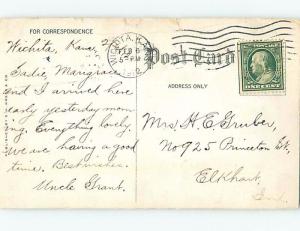 FOR CORRESPONDENCE
Post Card
ADDRESS ONLY
WICHITA, K
FEB 6
5 PM
ONE CENT
Wichita, Kans,
Sadie, Margrace
and I arrived here
early yesterday morn
ing. Everything lovely.
We are having a good
time. Best wishes.
Uncle Grant.
Mrs. H. E. Gruber,
No 925 Princeton St,
Elkhart
Ind.